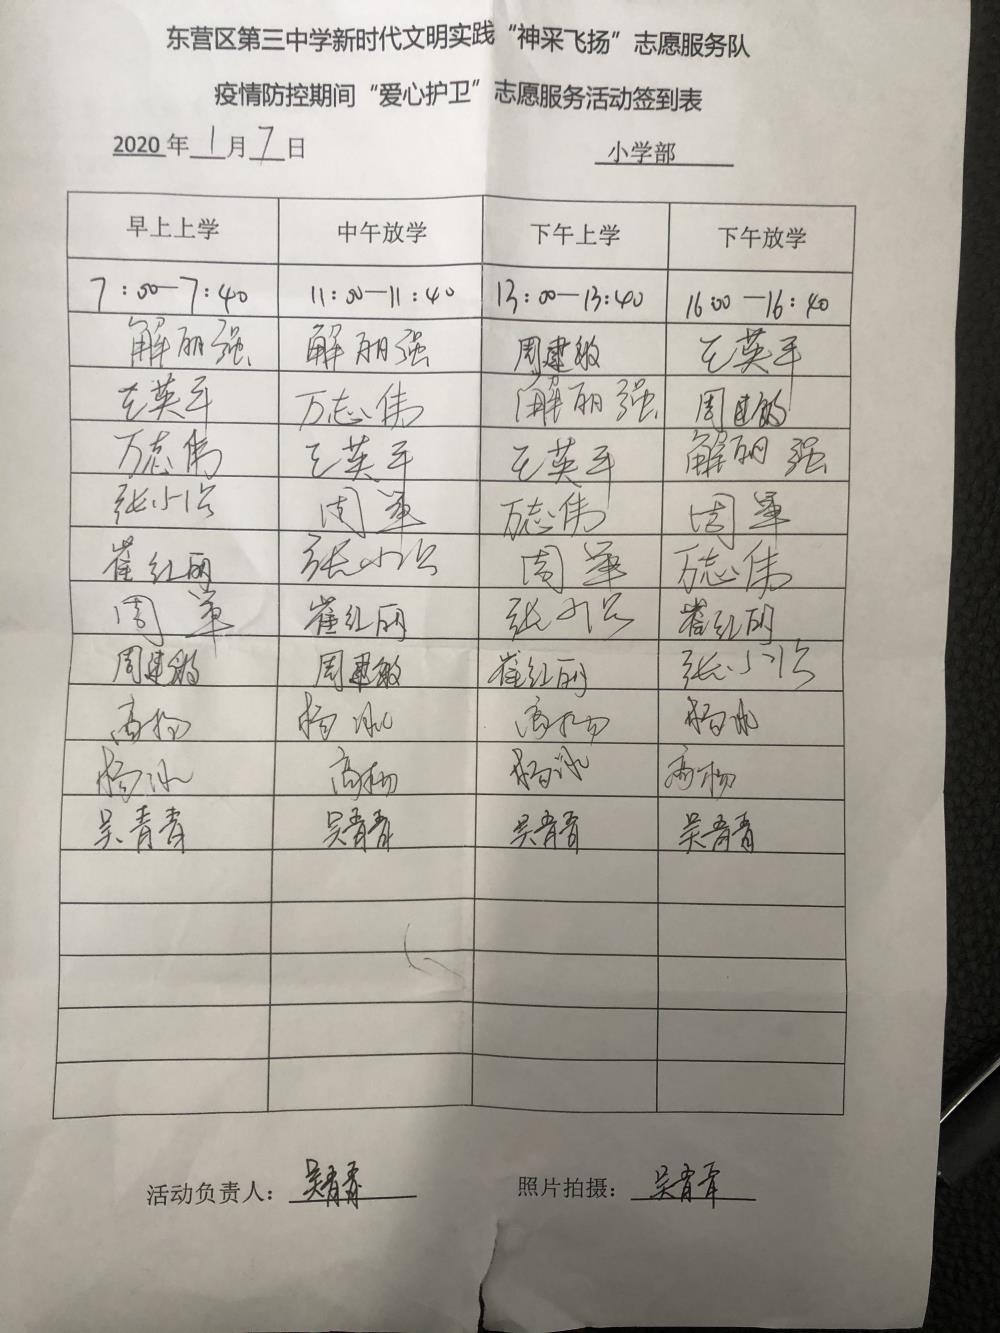 东营区第三中学新时代文明实践“神采飞扬”志愿服务队
疫情防控期间“爱心护卫”志愿服务活动签到表
2020 年 1 月 7 日 小学部
早上上学 中午放学 下午上学 下午放学
7:00—7:40 11:00—11:40 13:00—13:40 16:00—16:40
解丽强 解丽强 周建敏 王英平
王英平 万志伟 解丽强 周建敏
万志伟 王英平 王英平 解丽强
张小 周军 万志伟 周军
崔红丽 张小 周军 万志伟
周军 崔红丽 张小 崔红丽
周建敏 周建敏 崔红丽 张小
高杨 杨冰 高杨 杨冰
杨冰 高杨 杨冰 高杨
吴青青 吴青青 吴青青 吴青青
活动负责人:吴青青 照片拍摄:吴青青